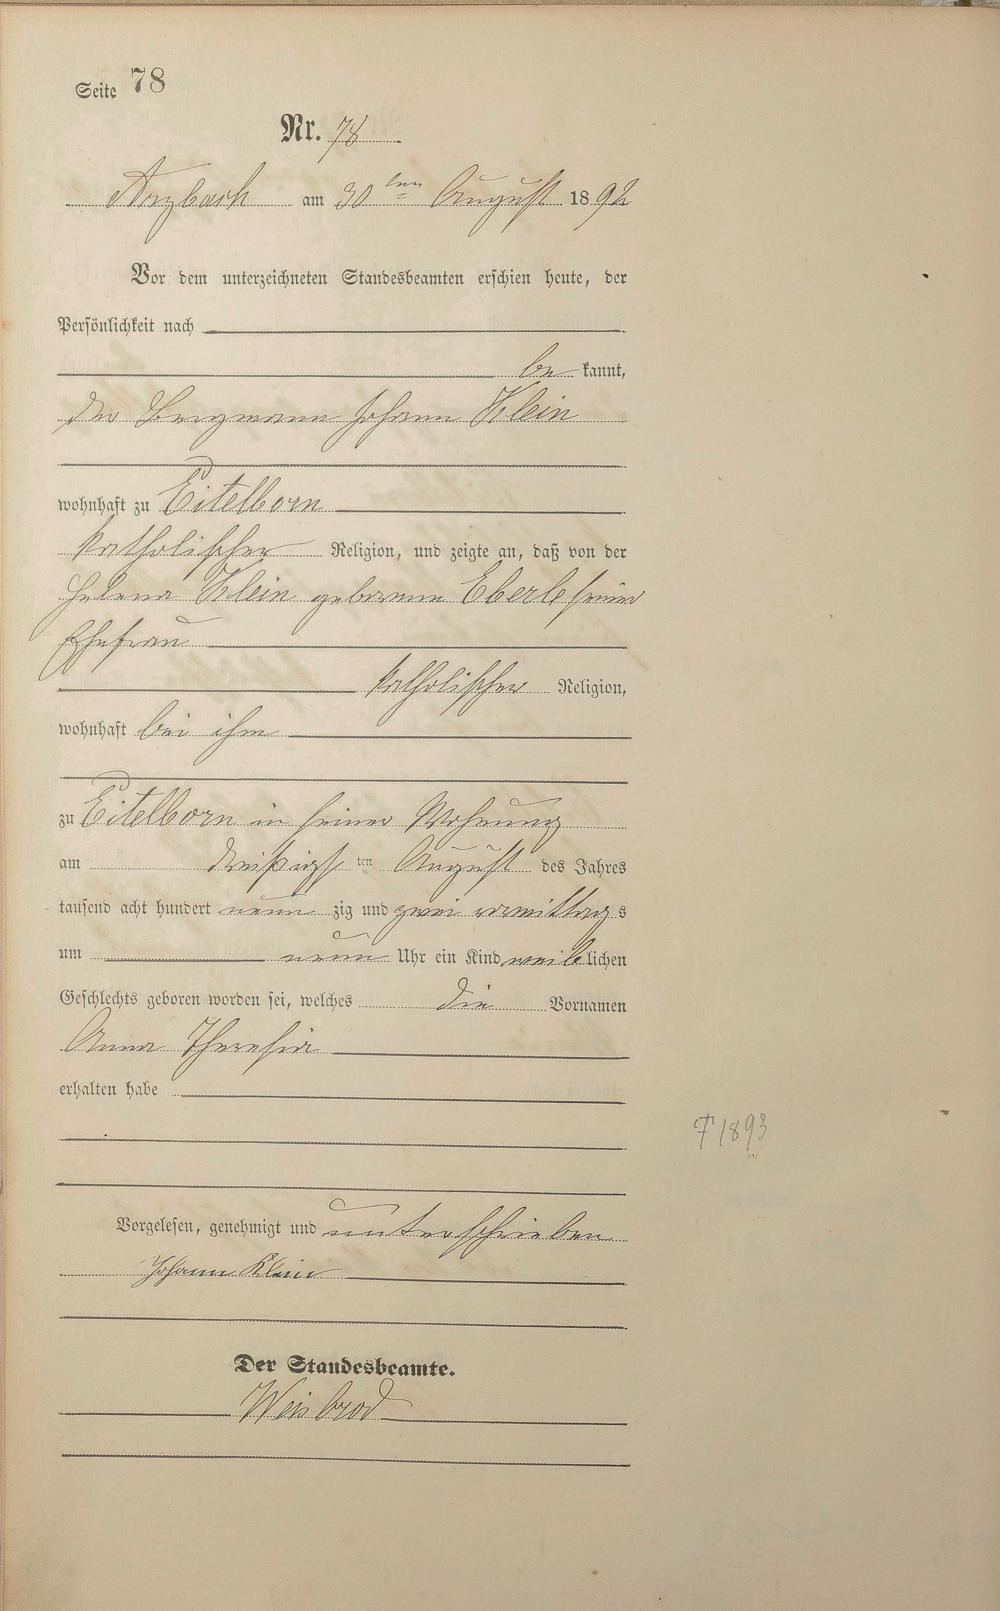 Seite 78
Nr. 78
Arzbach am 30ten August 1892
Vor dem unterzeichneten Standesbeamten erschien heute, der
Persönlichkeit nach
be kannt,
der Bergmann Johann Klein
wohnhaft zu Eitelborn
katholischer Religion, und zeigte an, daß von der
Helena Klein geborenen Eberle seiner
Ehefrau
katholischer Religion,
wohnhaft bei ihm
zu Eitelborn in seiner Wohnung
am dreißigsten August des Jahres
tausend acht hundert neun zig und zwei vormittags
um neun Uhr ein Kind weiblichen
Geschlechts geboren worden sei, welches die Vornamen
Anna Theresia
erhalten habe
† 1893
Vorgelesen, genehmigt und unterschrieben
Johann Klein
Der Standesbeamte.
Weisbrod